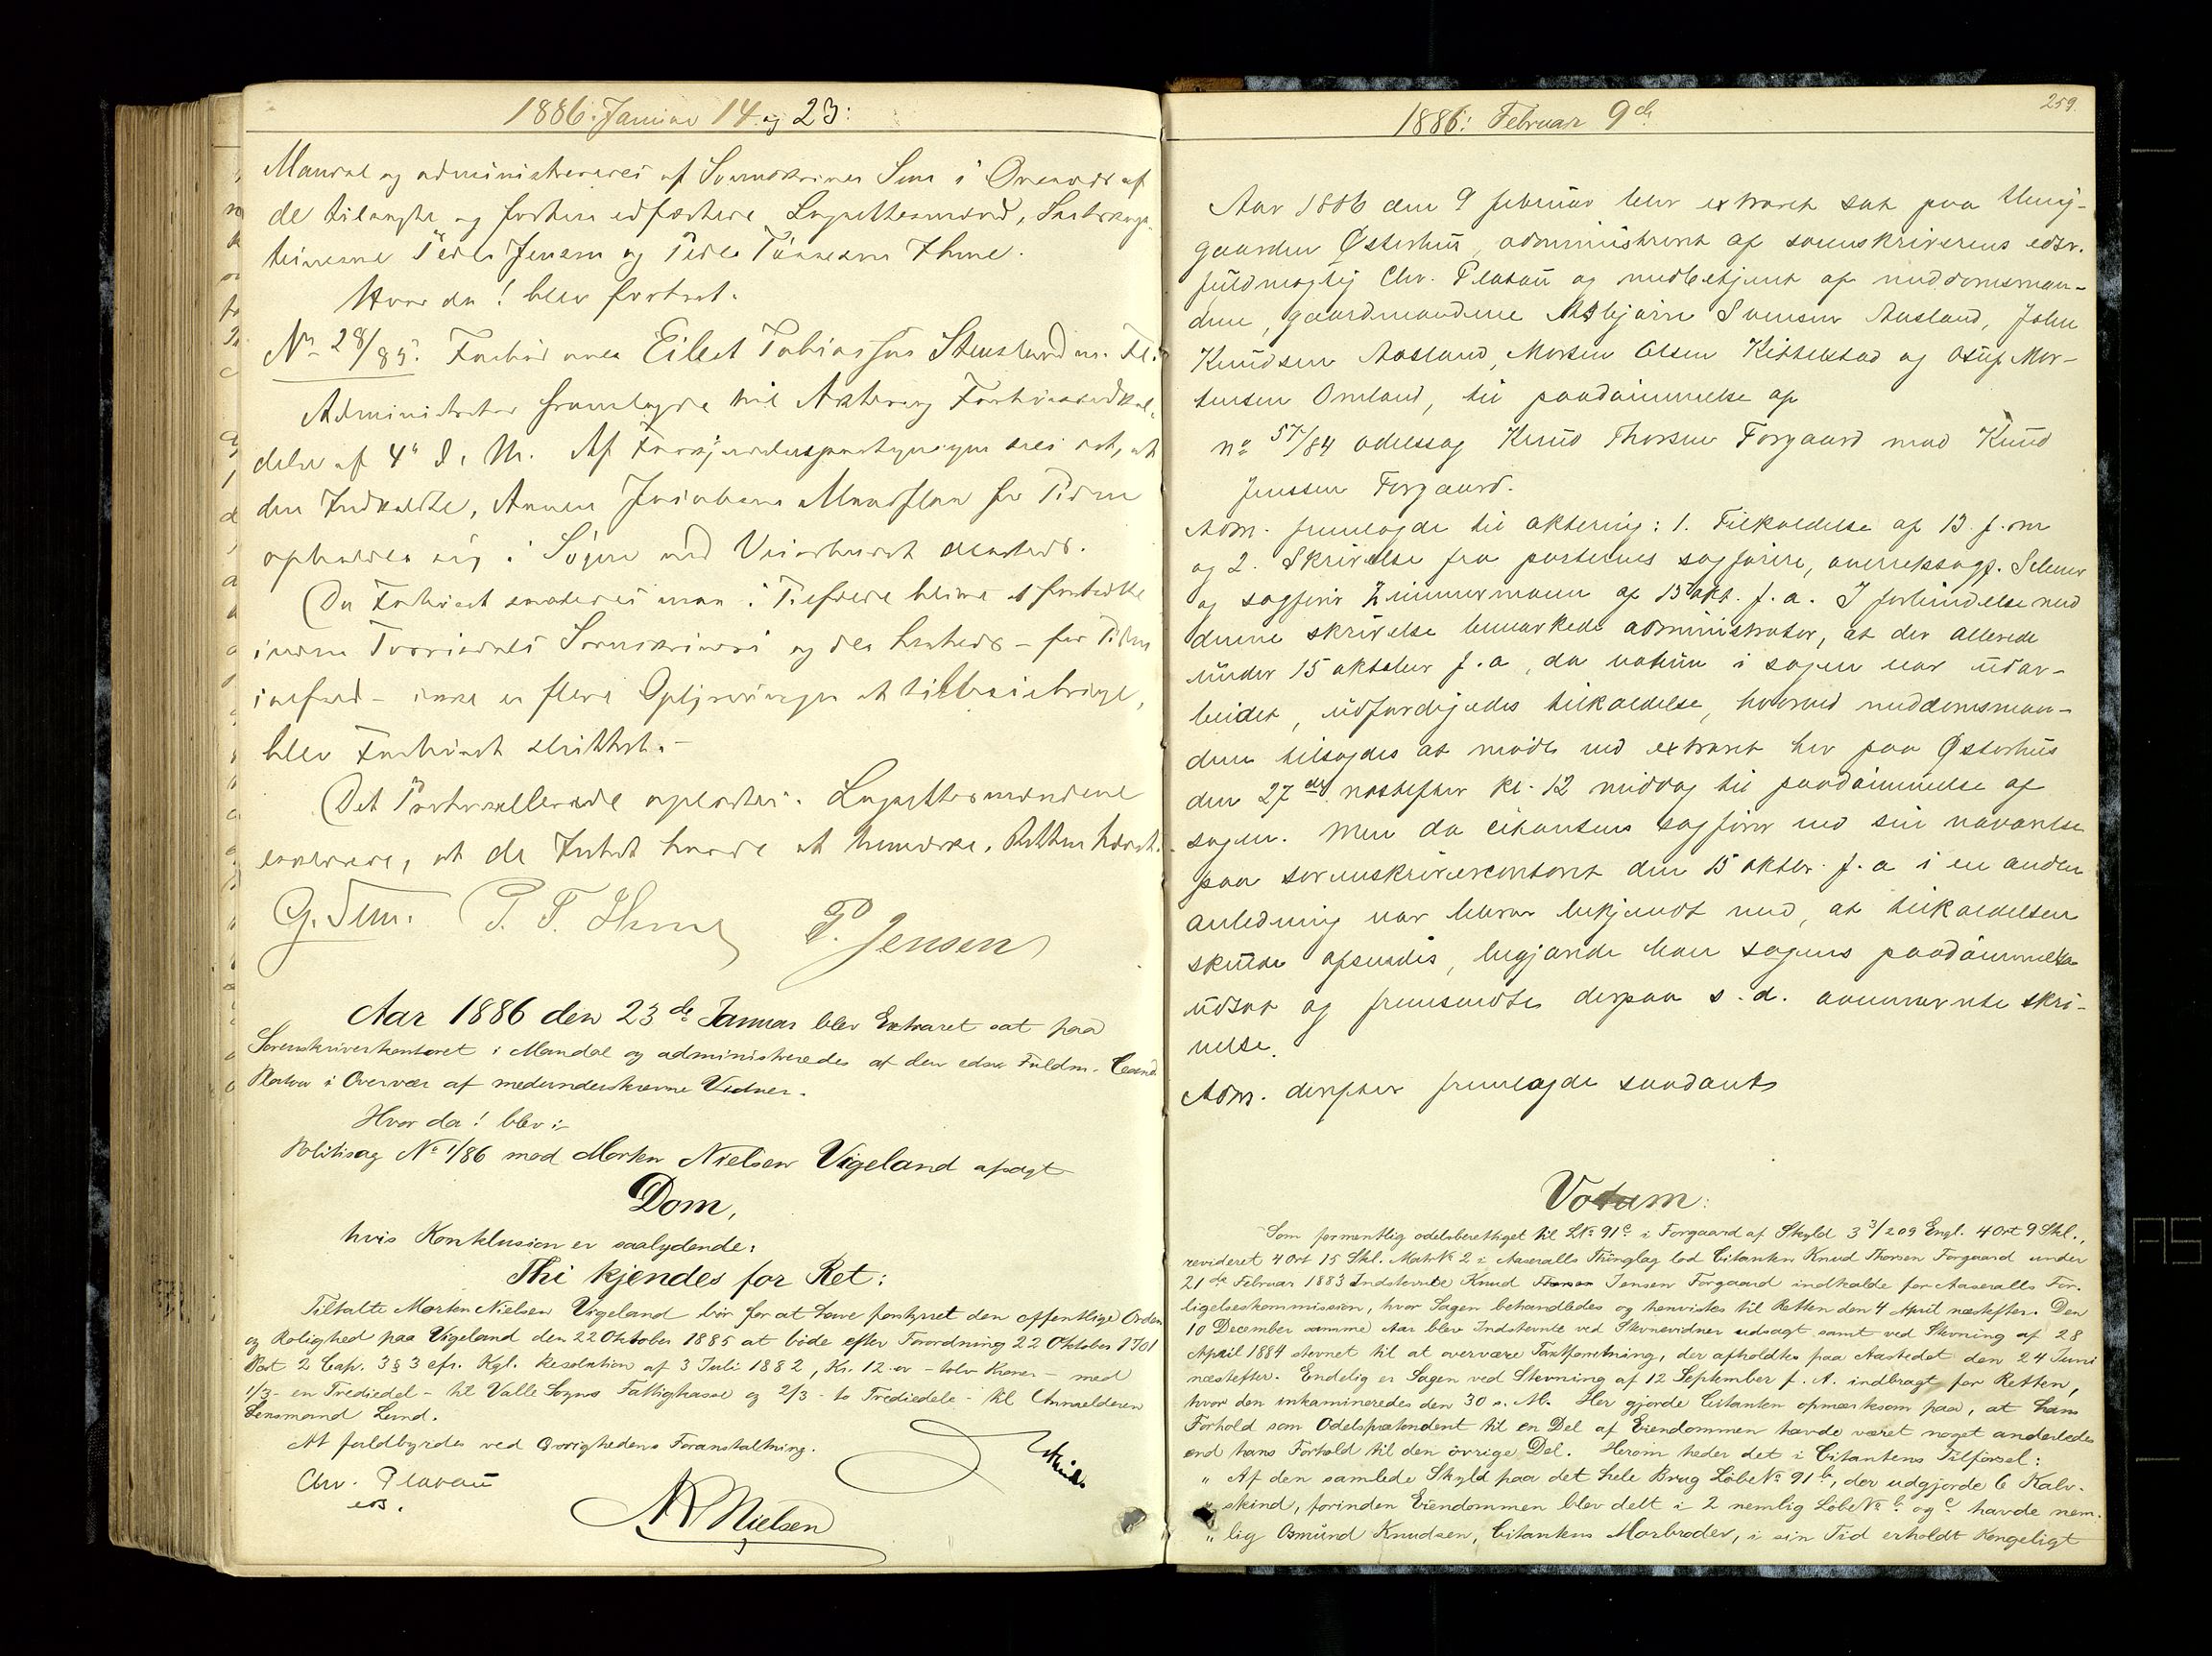 1886. Januar 14 og 23:
Mandal og administreredes af Sorenskriver Sem i Overvær af
de tilsagte og forhen edfæstede Lagrettesmænd, Sædvanlige
Peder Jensen og Peder Tønnesen Ihme.
Hvor da! blev foretaget.
No 28/85. Forhør over Eilert Tobiassen Stensland m. Fl.
Administrator fremlagde til Aktering Forhørsindkal-
delse af 4de d. M. Af Forkyndelsespaategningen sees det, at
den Indkaldte, Annen Jakobsen Mandflaa for Tiden
opholder sig i Søgne ved Veiarbeidet dersteds.
Da Forhøret
og der herteds - for Tiden
ialfald - ikke er flere Oplysninger at tilveiebringe,
blev Forhøret sluttet. -
Det Protokollerede oplæstes. Lagrettesmændene
erklærede, at de Intet havde at bemærke. Retten hævet.
G. Sem. P. T. Ihme P. Jensen
Aar 1886 den 23de Januar blev Extraret sat paa
Sorenskriverkontoret i Mandal og administreredes af den edsv. Fuldm. Cand.
Platou i Overvær af medunderskrevne Vidner.
Hvor da! blev i:
Politisag No 1/86 mod Morten Nielsen Vigeland afsagt
Dom,
hvis Konklusion er saalydende:
Thi kjendes for Ret:
Tiltalte Morten Nielsen Vigeland bør for at have forstyrret den offentlige Orden
og Rolighed paa Vigeland den 22 Oktober 1885 at bøde efter Forordning 22 Oktober 1701
Post 2 Cap. 3 § 3 cfr. Kgl. Resolution af 3 Juli 1882, Kr. 12.00 - tolv Kroner - med
1/3 - en Trediedel - til Valle Sogns Fattigkasse og 2/3 - to Trediedele - til Anmelderen
Lensmand Lund.
At fuldbyrdes ved Øvrighedens Foranstaltning.
Chr. Platou
eds.
N Nielsen
259.
1886: Februar 9de
Aar 1886 den 9 februar blev extraret sat paa thing-
gaarden Østerhus, administreret af sorenskriverens edsv.
fuldmægtig Chr. Platou og medbetjent af meddomsmæn-
dene, gaardmændene Asbjørn Svensen Aasland, John
Knudsen Aasland, Morten Olsen Kittelstad og Osuf Mor-
tensen Omland, til paadømmelse af
no 57/84 odelssag Knud Thorsen Forgaard mod Knud
Jenssen Forgaard.
Adm. fremlagde til aktering: 1. Tilkaldelse af 13 f. m
og 2. Skrivelse fra parternes sagførere, overretssagf. Selmer
og sagfører Zimmermann af 15 okt. f. a. I forbindelse med
denne skrivelse bemærkede administrator, at der allerede
under 15 oktober f. a., da votum i sagen var udar-
beidet, udfærdigedes tilkaldelse, hvorved meddomsmæn-
dene tilsagdes at møde ved extraret her paa Østerhus
den 27de næstefter kl. 12 middag til paadømmelse af
sagen. Men da citantens sagfører ved sin nærværelse
paa sorenskrivercontoret den 15 oktbr. f. a i en anden
anledning var bleven bekjendt med, at tilkaldelsen
skulde afsendes, begjærede han sagens paadømmelse
udsat og fremsendte derpaa s. d. ovennævnte skri-
velse.
Adm. derefter fremlagde saadant
Votum:
Som formentlig odelsberettiget til LNo 91c i Forgaard af Skyld 3 3/209 Engl. 4 Ort 9 Skl.,
revideret 4 Ort 15 Skl. MatrNo 2 i Aaseralls Thinglag lod Citanten Knud Thorsen Forgaard under
21de Februar 1883 Indstevnte Knud Jensen Forgaard indkalde for Aaseralls For-
ligelseskommission, hvor Sagen behandledes og henvistes til Retten den 4 April næstefter. Den
10 December samme Aar blev Indstevnte ved Stevnevidner udsagt samt ved Stevning af 28
April 1884 stevnet til at overvære Taxtforretning, der afholdtes paa Aastedet den 24 Juni
næstefter. Endelig er Sagen ved Stevning af 12 September f. A. indbragt for Retten,
hvor den inkamineredes den 30 s. M. Her gjorde Citanten opmærksom paa, at hans
Forhold som Odelsprætendent til en Del af Eiendommen havde været noget anderledes
end hans Forhold til den øvrige Del. Herom heder det i Citantens Tilførsel:
„ Af den samlede Skyld paa det hele Brug LøbeNo 91b, der udgjorde 6 Kalv-
„ skind, førinden Eiendommen blev delt i 2 nemlig LøbeNo b og c havde nem-
„ lig Osmund Knudsen, Citantens Morbroder, i sin Tid erholdt Kongeligt